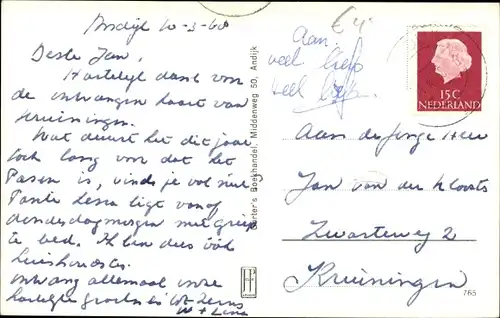 Andijk 10-3-68
Beste Jan,
Hartelijk dank voor
de ontvangen kaart van
Kruiningen.
Wat duurt het dit jaar
toch lang voor dat het
Pasen is, vind je wel niet
Tante Lena ligt vanaf
donderdagmorgen met griep
te bed. Ik ben dus óók
huishoudster.
Ontvang allemaal onze
hartelijke groeten en tot ziens
W + Lena
Aan
veel liefs
veel liefs
15C
NEDERLAND
Aan de Jonge Heer
Jan van der
Zwarteweg 2
Kruiningen
Boekhandel, Middenweg 50, Andijk
765